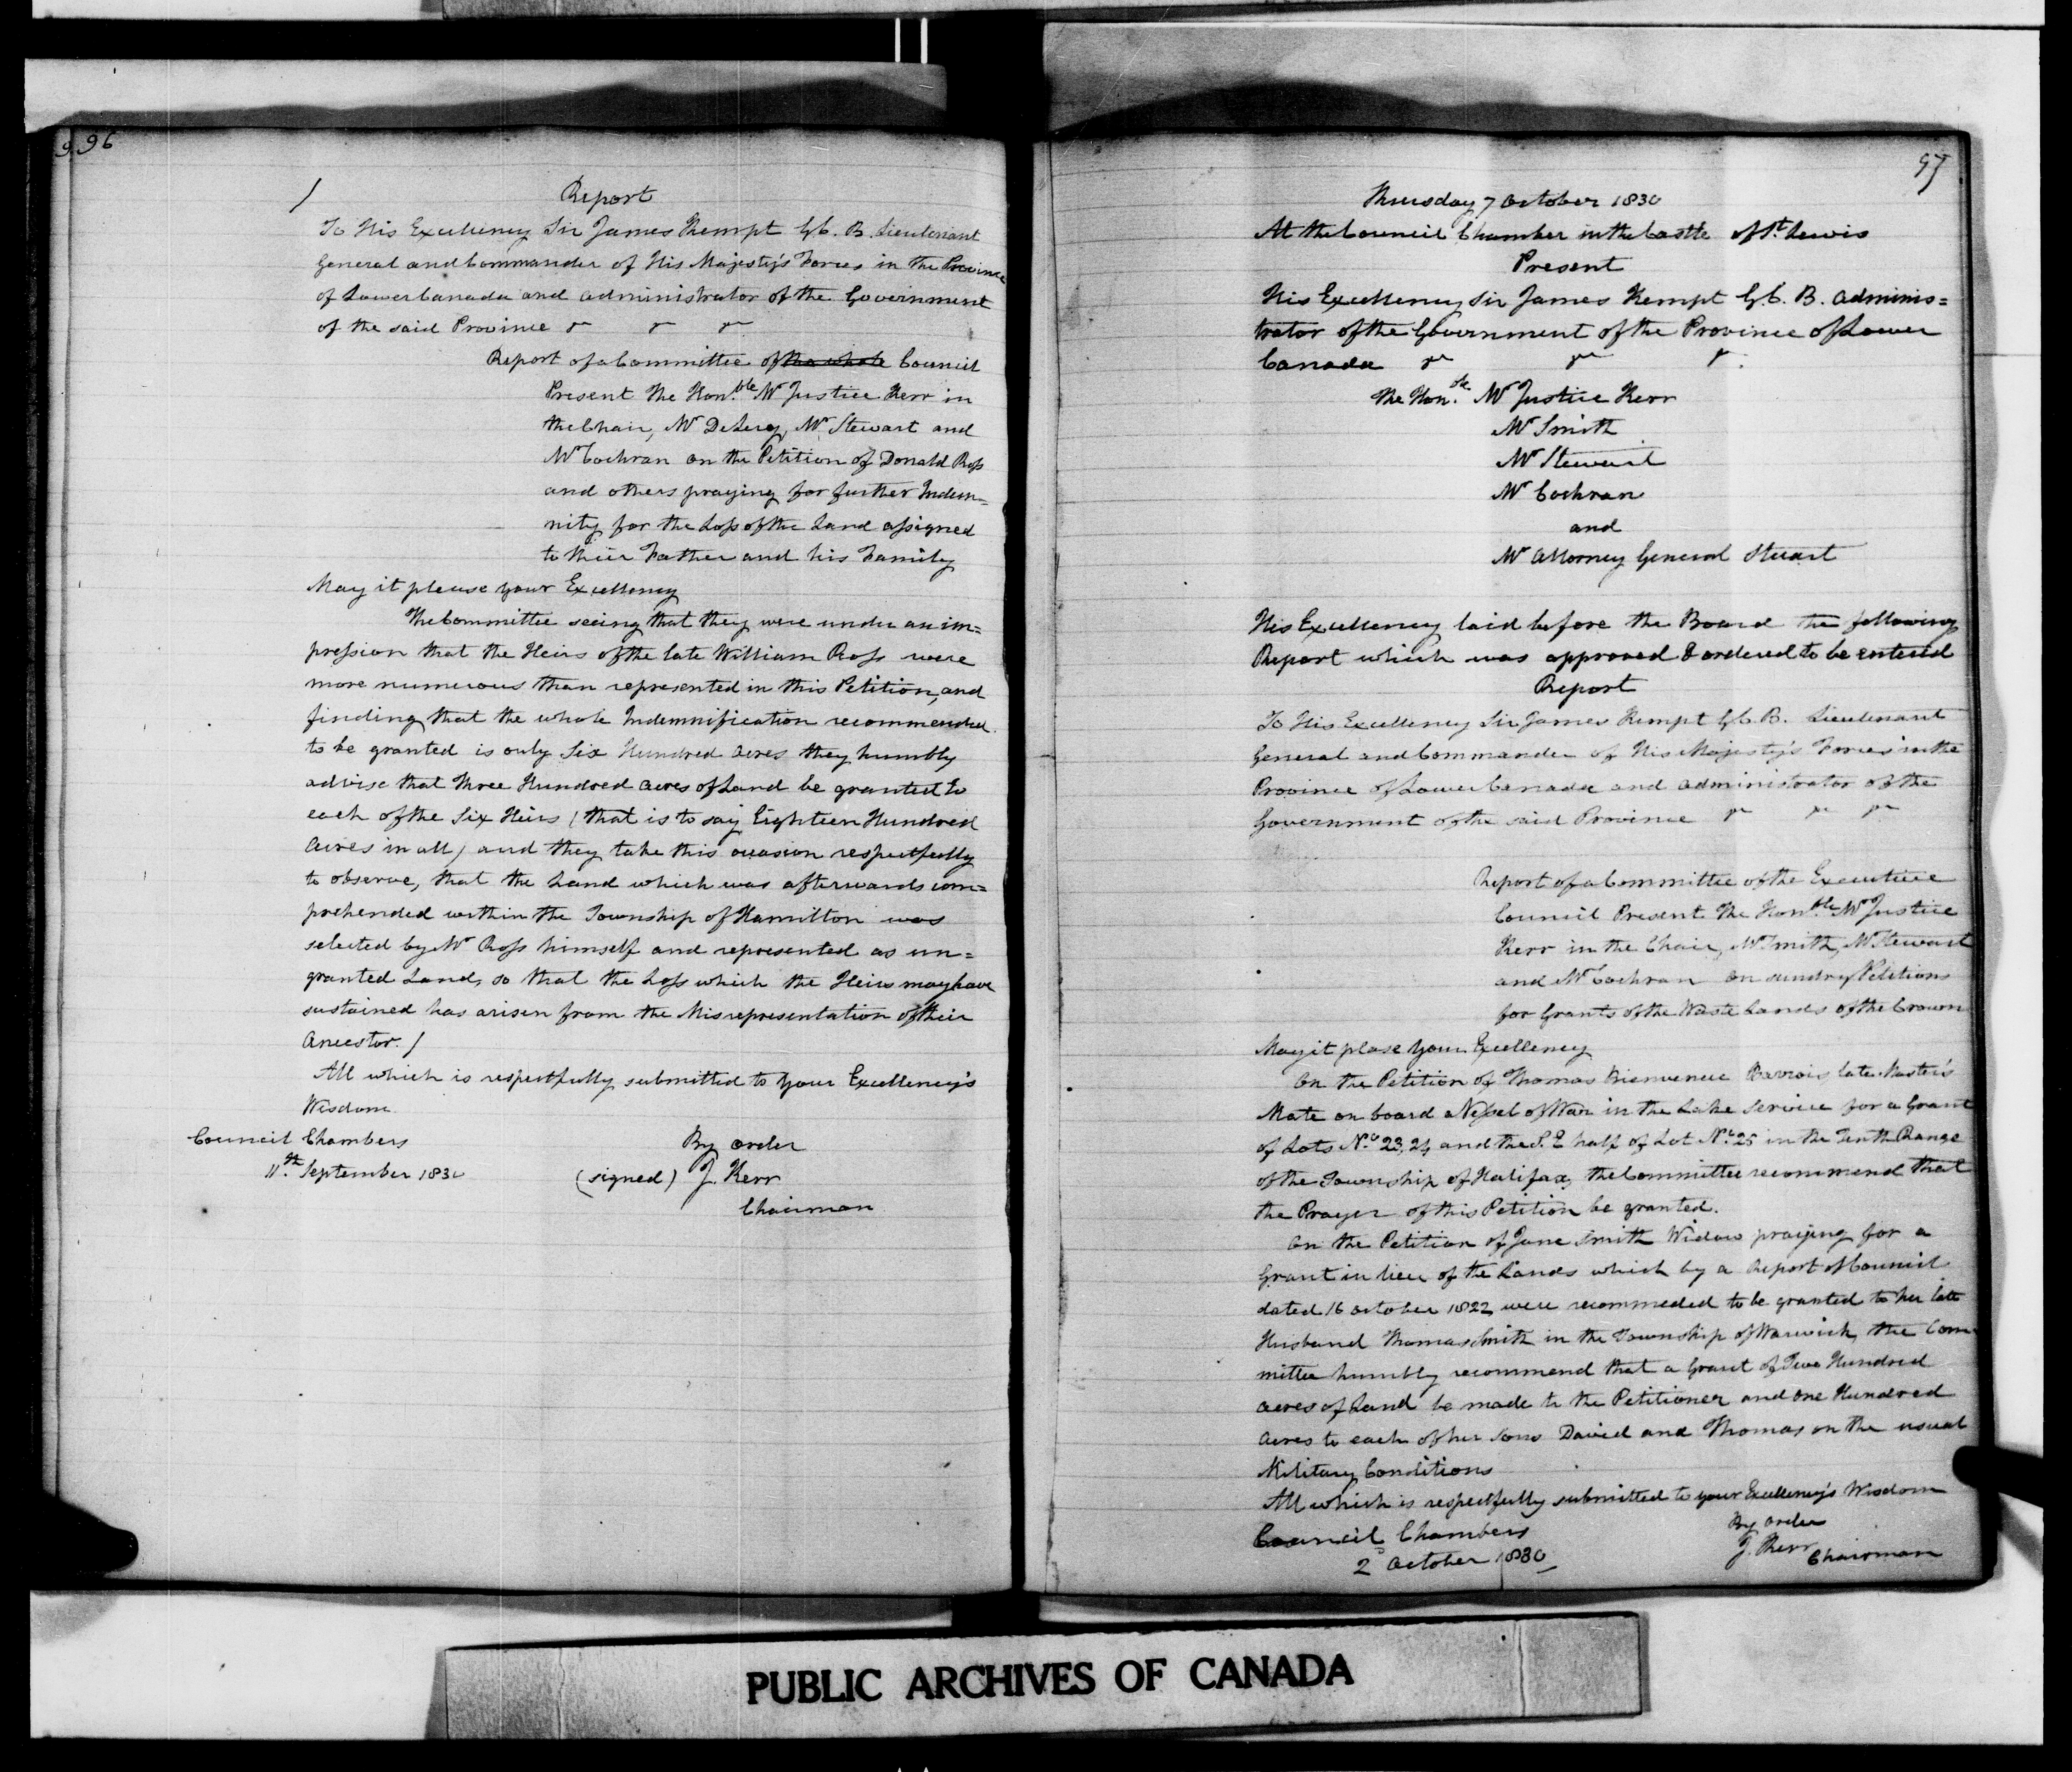 96
Report
To His Excellency Sir James Kempt G.C.B. Lieutenant
General and Commander of His Majesty's Forces in the Province
of Lower Canada and administrator of the Government
of the said Province &c &c &c
Report of a Committee of the whole Council
Present The Hon.ble Mr Justice Kerr in
the Chair, Mr DeLery, Mr Stewart and
Mr Cochran on the Petition of Donald Ross
and others praying for further Indem-
nity for the Loss of the Land assigned
to their Father and his Family
May it please your Excellency
The Committee seeing that they were under an im=
pression that the Heirs of the late William Ross were
more numerous than represented in this Petition, and
finding that the whole Indemnification recommended
to be granted is only Six Hundred acres they humbly
advise that Three Hundred acres of Land be granted to
each of the Six Heirs (that is to say Eighteen Hundred
Acres in all) and they take this occasion respectfully
to observe, that the Land which was afterwards com=
prehended within the Township of Hamilton was
selected by Mr Ross himself and represented as un=
granted Land, so that the Loss which the Heirs may have
sustained has arisen from the Misrepresentation of their
Ancestor. /
All which is respectfully submitted to your Excellency's
Wisdom
Council Chambers
11.th September 1830
By order
(signed) J. Kerr
Chairman
97
Thursday 7 October 1830
At the Council Chamber in the Castle of St Lewis
Present
His Excellency Sir James Kempt G.C.B. Adminis=
trator of the Government of the Province of Lower
Canada &c &c &c.
The Hon.ble Mr Justice Kerr
Mr Smith
Mr Stewart
Mr Cochran
and
Mr Attorney General Stuart
His Excellency laid before the Board the following
Report which was approved & ordered to be entered
Report
To His Excellency Sir James Kempt G.C.B. Lieutenant
General and Commander of His Majesty's Forces in the
Province of Lower Canada and administrator of the
Government of the said Province &c &c &c
Report of a Committee of the Executive
Council Present The Hon.ble Mr Justice
Kerr in the Chair, Mr Smith, Mr Stewart
and Mr Cochran on sundry Petitions
for Grants of the Waste Lands of the Crown
May it plase Your Excellency
On the Petition of Thomas Bienvenue Barrois late Master's
Mate on board a Vessel of War in the Lake Service for a Grant
of Lots No 23, 24 and the S.E half of Lot No 25 in the Tenth Range
of the Township of Halifax, the Committee recommend that
the Prayer of this Petition be granted.
On the Petition of Jane Smith Widow praying for a
Grant in lieu of the Lands which by a Report of Council
dated 16 October 1822 were recommeded to be granted to her late
Husband Thomas Smith in the Township of Warwick, the Com
mittee humbly recommend that a Grant of Two Hundred
acres of Land be made to the Petitioner and One Hundred
Acres to each of her Sons David and Thomas on the usual
Military Conditions
All which is respectfully submitted to your Excellency's Wisdom
Council Chambers
2d October 1830
By order
J. Kerr
Chairman
PUBLIC ARCHIVES OF CANADA